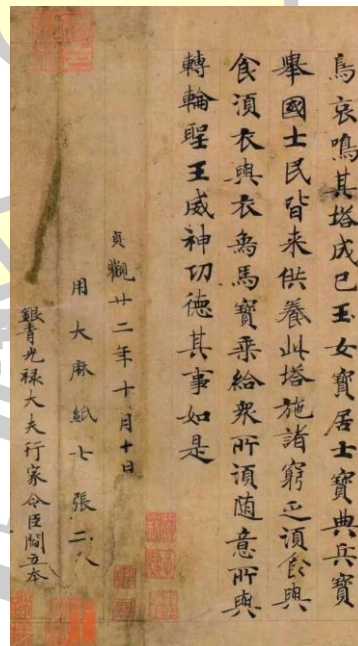 鳥哀鳴其塔成已玉女寶居士寶典兵寶
舉國士民皆来供養此塔施諸窮乏須食與
食須衣與衣烏馬寶乗給衆所須随意所與
轉輪聖王威神功德其事如是
貞觀廿二年十月十日
用大麻紙七張二分
銀青光禄大夫行家令臣閻立本